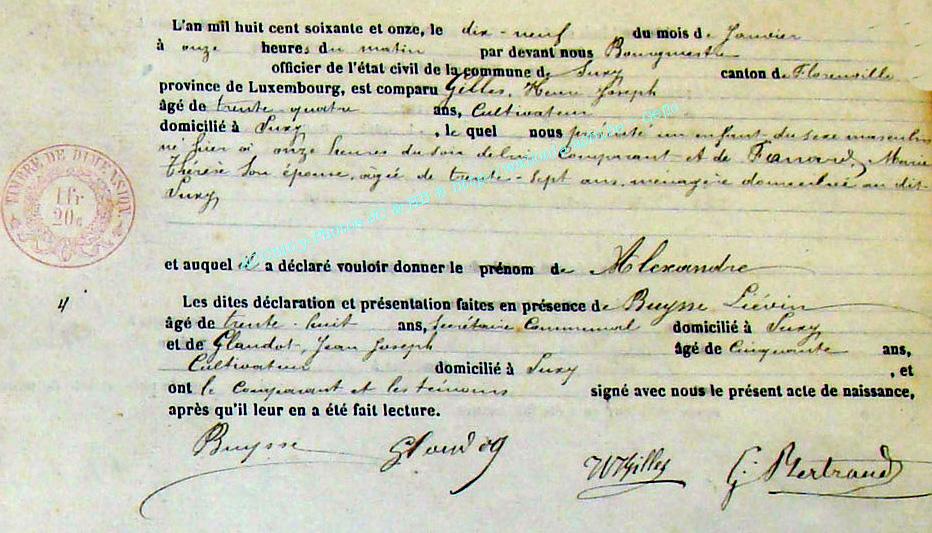 L'an mil huit cent soixante et onze, le dix-neuf du mois de Janvier
à onze heures du matin par devant nous Bourgmestre
officier de l'état civil de la commune de Suxy canton de Florenville
province de Luxembourg, est comparu Gilles, Henri Joseph
âgé de trente quatre ans, Cultivateur
domicilié à Suxy, le quel nous présenté un enfant du sexe masculin
né hier à onze heures du soir de lui Comparant et de Fanard, Marie
Thérèse Son épouse, agée de trente-sept ans, ménagère domiciliée au dit
Suxy
TIMBRE DE DIMENSION.
1 fr
20c
et auquel il a déclaré vouloir donner le prénom de Alexandre
4
Les dites déclaration et présentation faites en présence de Buysse Liévin
âgé de trente-huit ans, Secrétaire Communal domicilié à Suxy
et de Glaudot, Jean Joseph âgé de Cinquante ans,
Cultivateur domicilié à Suxy, et
ont le Comparant et les témoins signé avec nous le présent acte de naissance,
après qu'il leur en a été fait lecture.
Buysse
HGilles
G. Bertrand